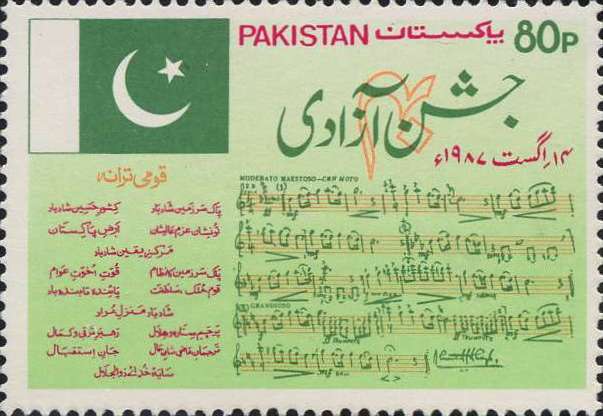 PAKISTAN پاکستان 80P
جشن آزادی
۴۰
۱۴ اگست ۱۹۸۷ء
قومی ترانہ
پاک سرزمین شاد باد کشور حسین شاد باد
تو نشان عزم عالیشان ارض پاکستان
مرکز یقین شاد باد
پاک سرزمین کا نظام قوت اخوت عوام
قوم ملک سلطنت پائندہ تابندہ باد
شاد باد منزل مراد
پرچم ستارہ و ہلال رہبر ترقی و کمال
ترجمان ماضی شان حال جان استقبال
سایۂ خدائے ذوالجلال
MODERATO MAESTOSO-CON MOTO
(1)
GRANDIOSO
TRUMPETS
TRUMPETS